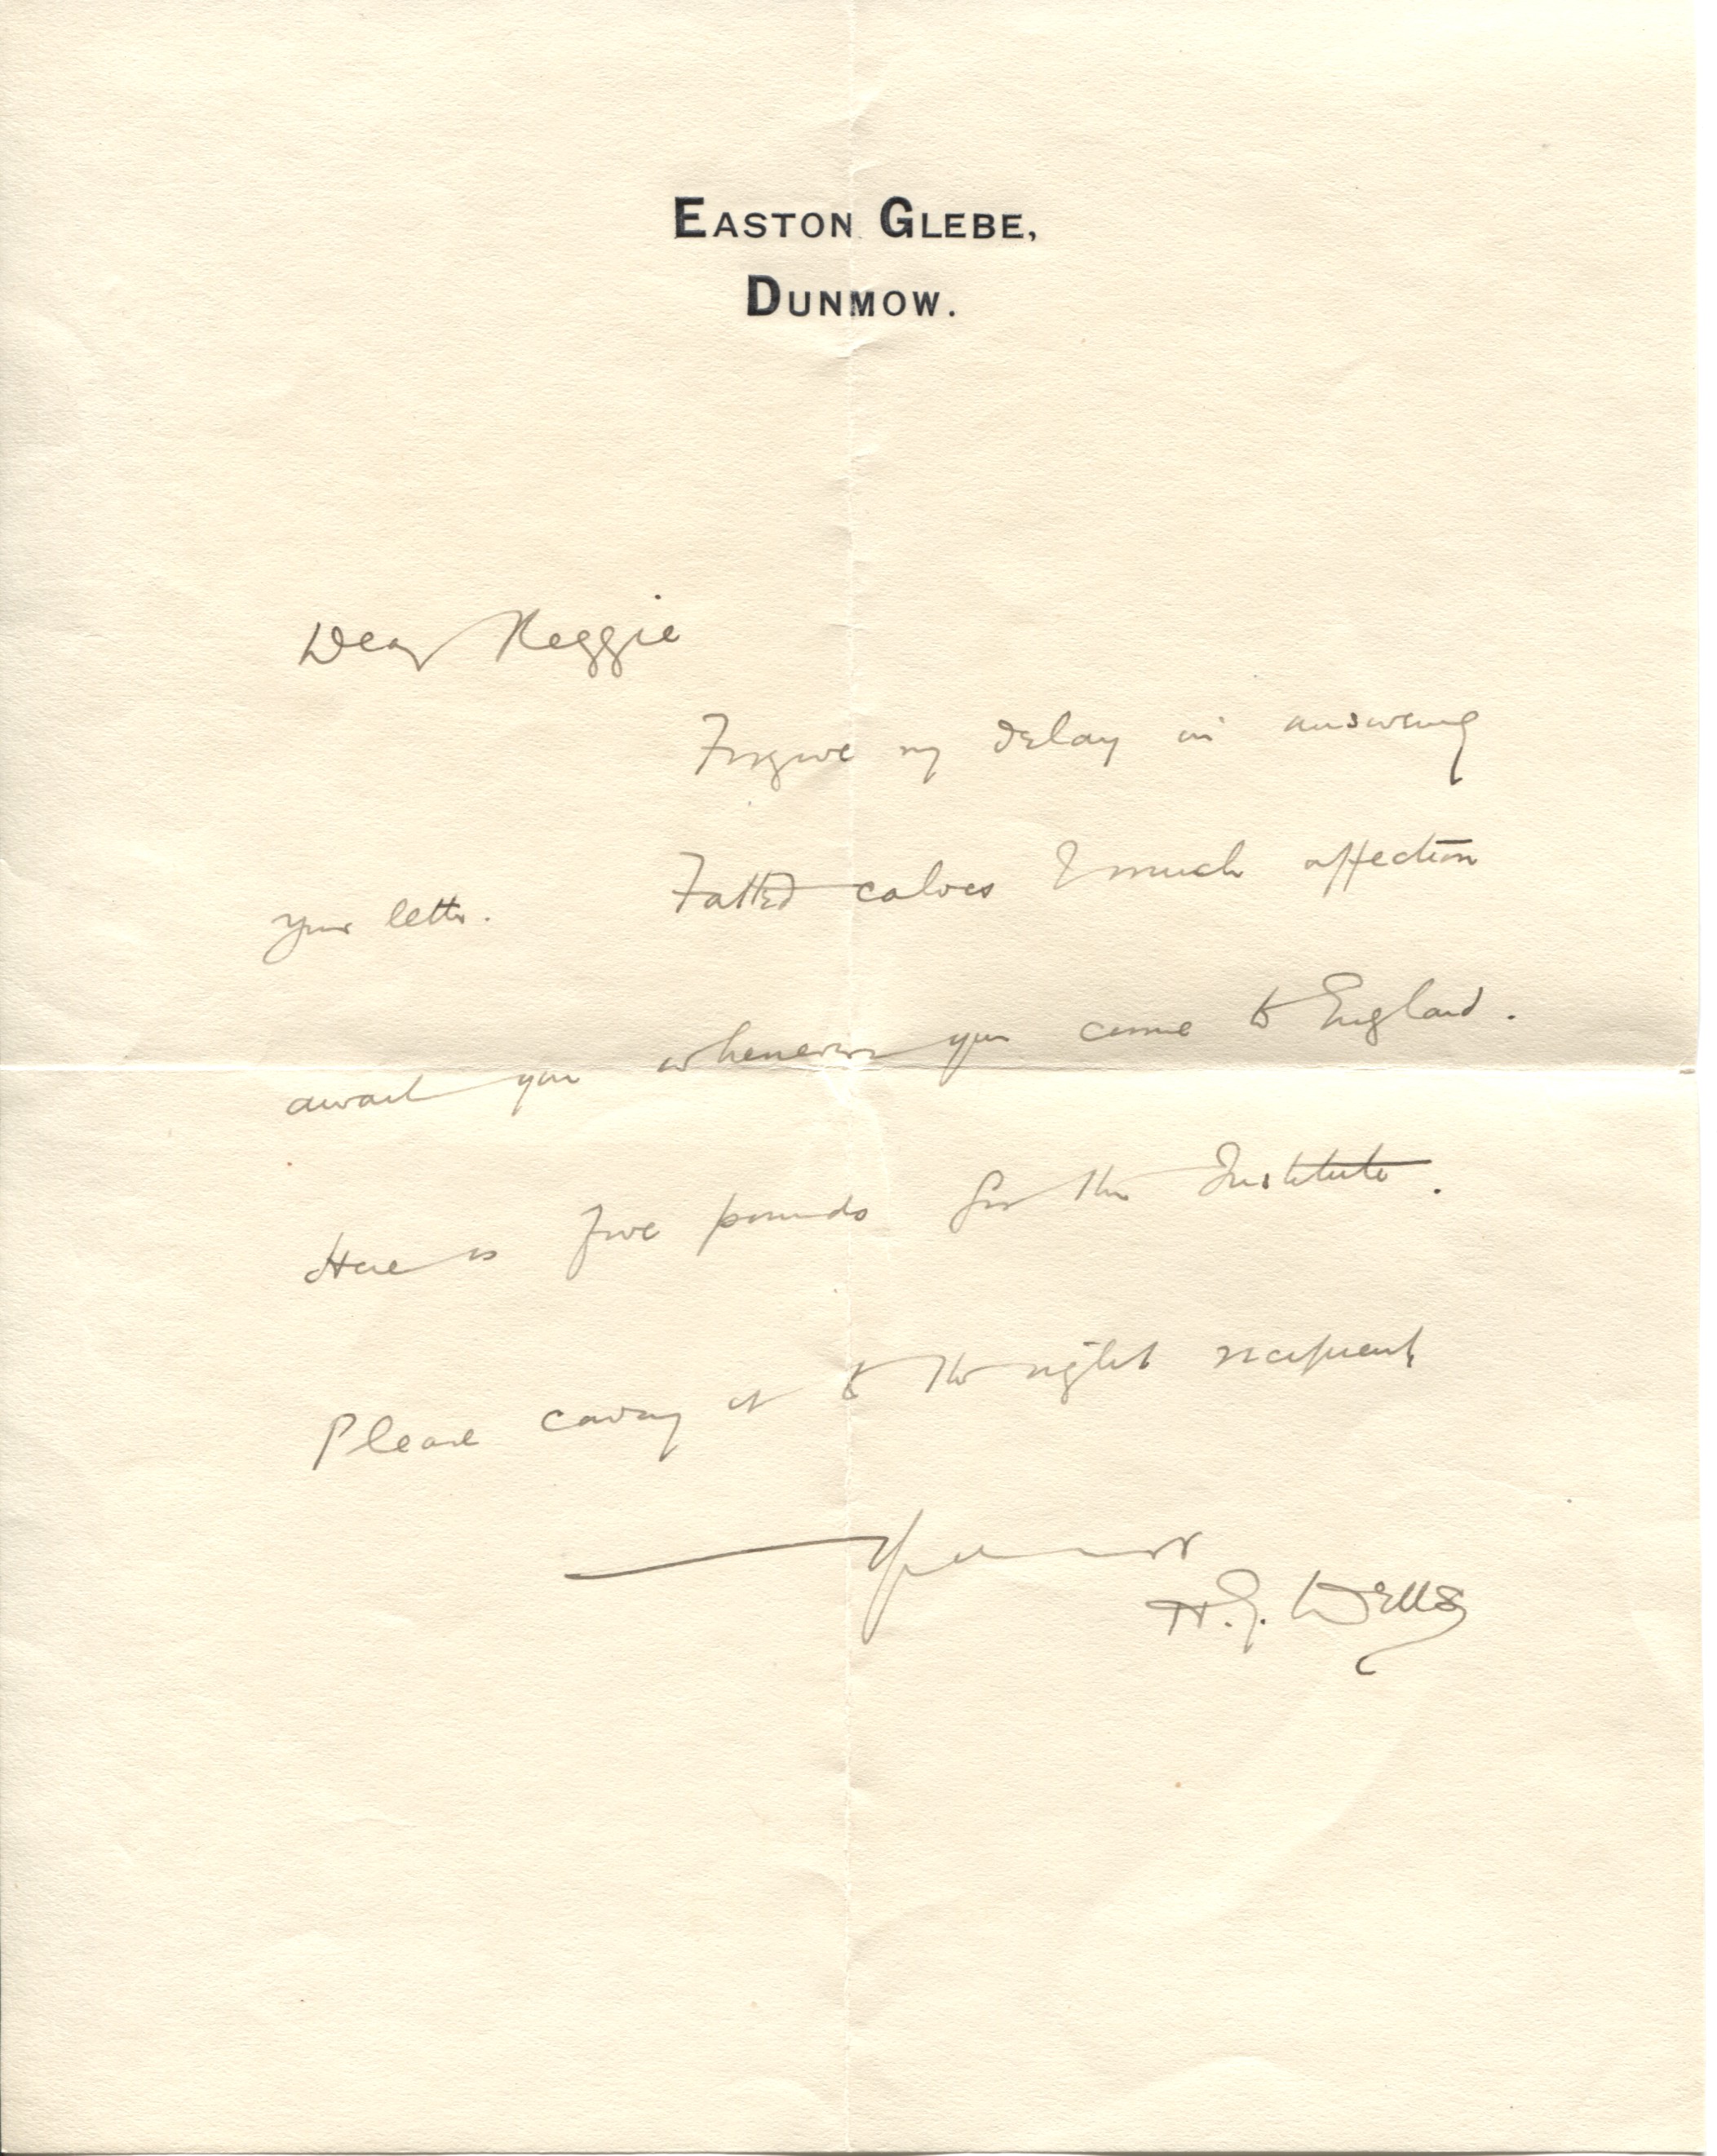 EASTON GLEBE,
DUNMOW.
Dear Reggie
Forgive my delay in answering
your letter. Fatted calves & much affection
await you whenever you come to England.
Here is five pounds for the Institute.
Please convey it to the right recipient
Yours
H.G. Wells